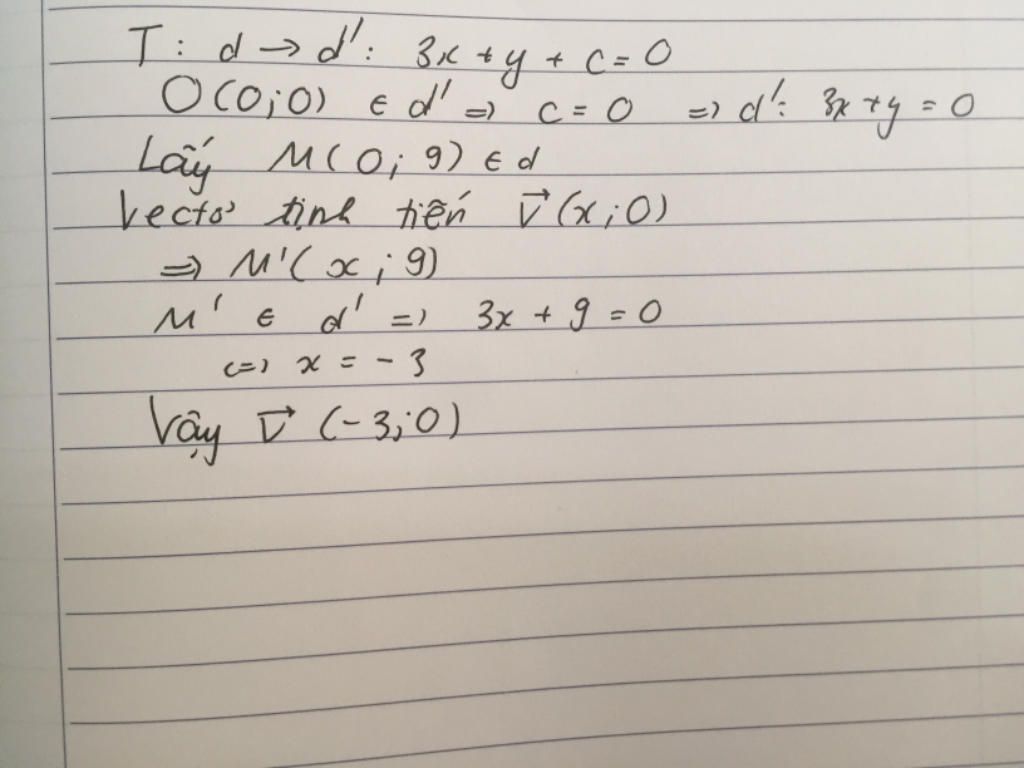 T: d → d': 3x + y + c = 0
O(0;0) ∈ d' => c = 0 => d': 3x + y = 0
Lấy M(0; 9) ∈ d
Vectơ tịnh tiến v⃗(x;0)
=> M'(x; 9)
M' ∈ d' => 3x + 9 = 0
<=> x = -3
Vậy v⃗(-3;0)